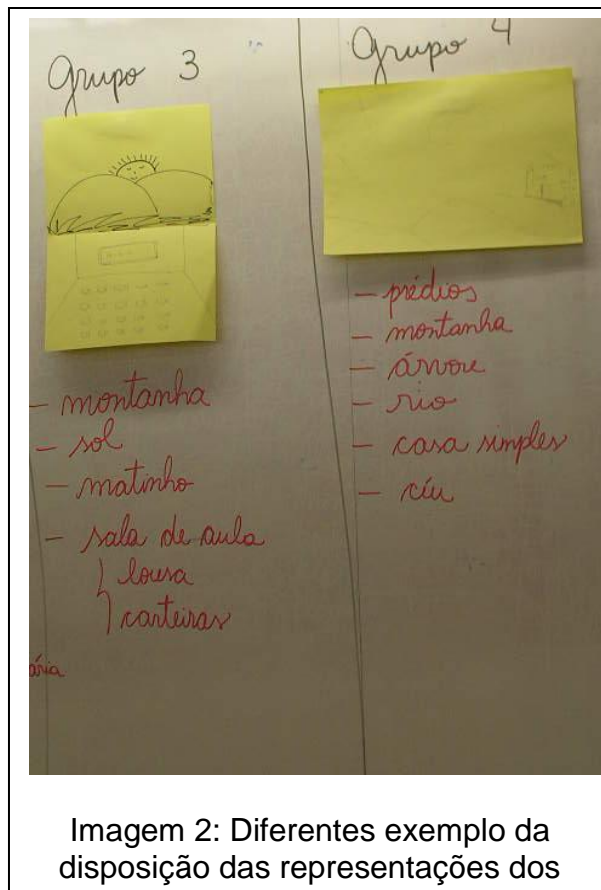 Grupo 3
- montanha
- sol
- matinho
- sala de aula
lousa
carteiras
ária
Grupo 4
- prédios
- montanha
- árvore
- rio
- casa simples
- céu
Imagem 2: Diferentes exemplo da
disposição das representações dos